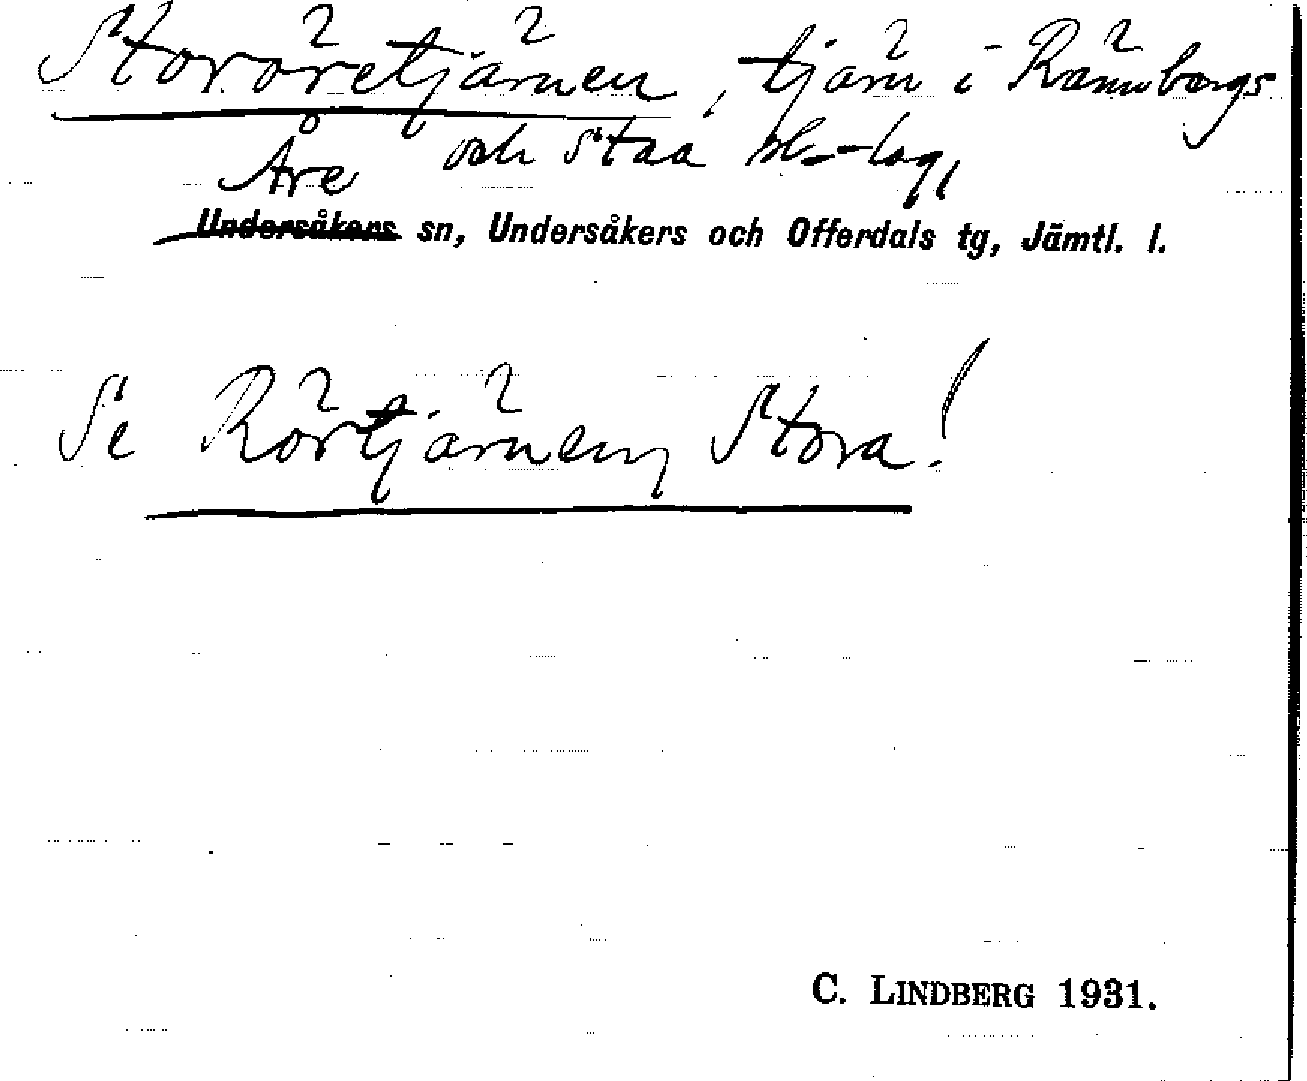 Storöretjärnen, tjärn i Rännbergs
och Staa sk.-lag,
Åre
Undersåkers sn, Undersåkers och Offerdals tg, Jämtl. l.
Se Rörtjärnen, Stora!
C. LINDBERG 1931.